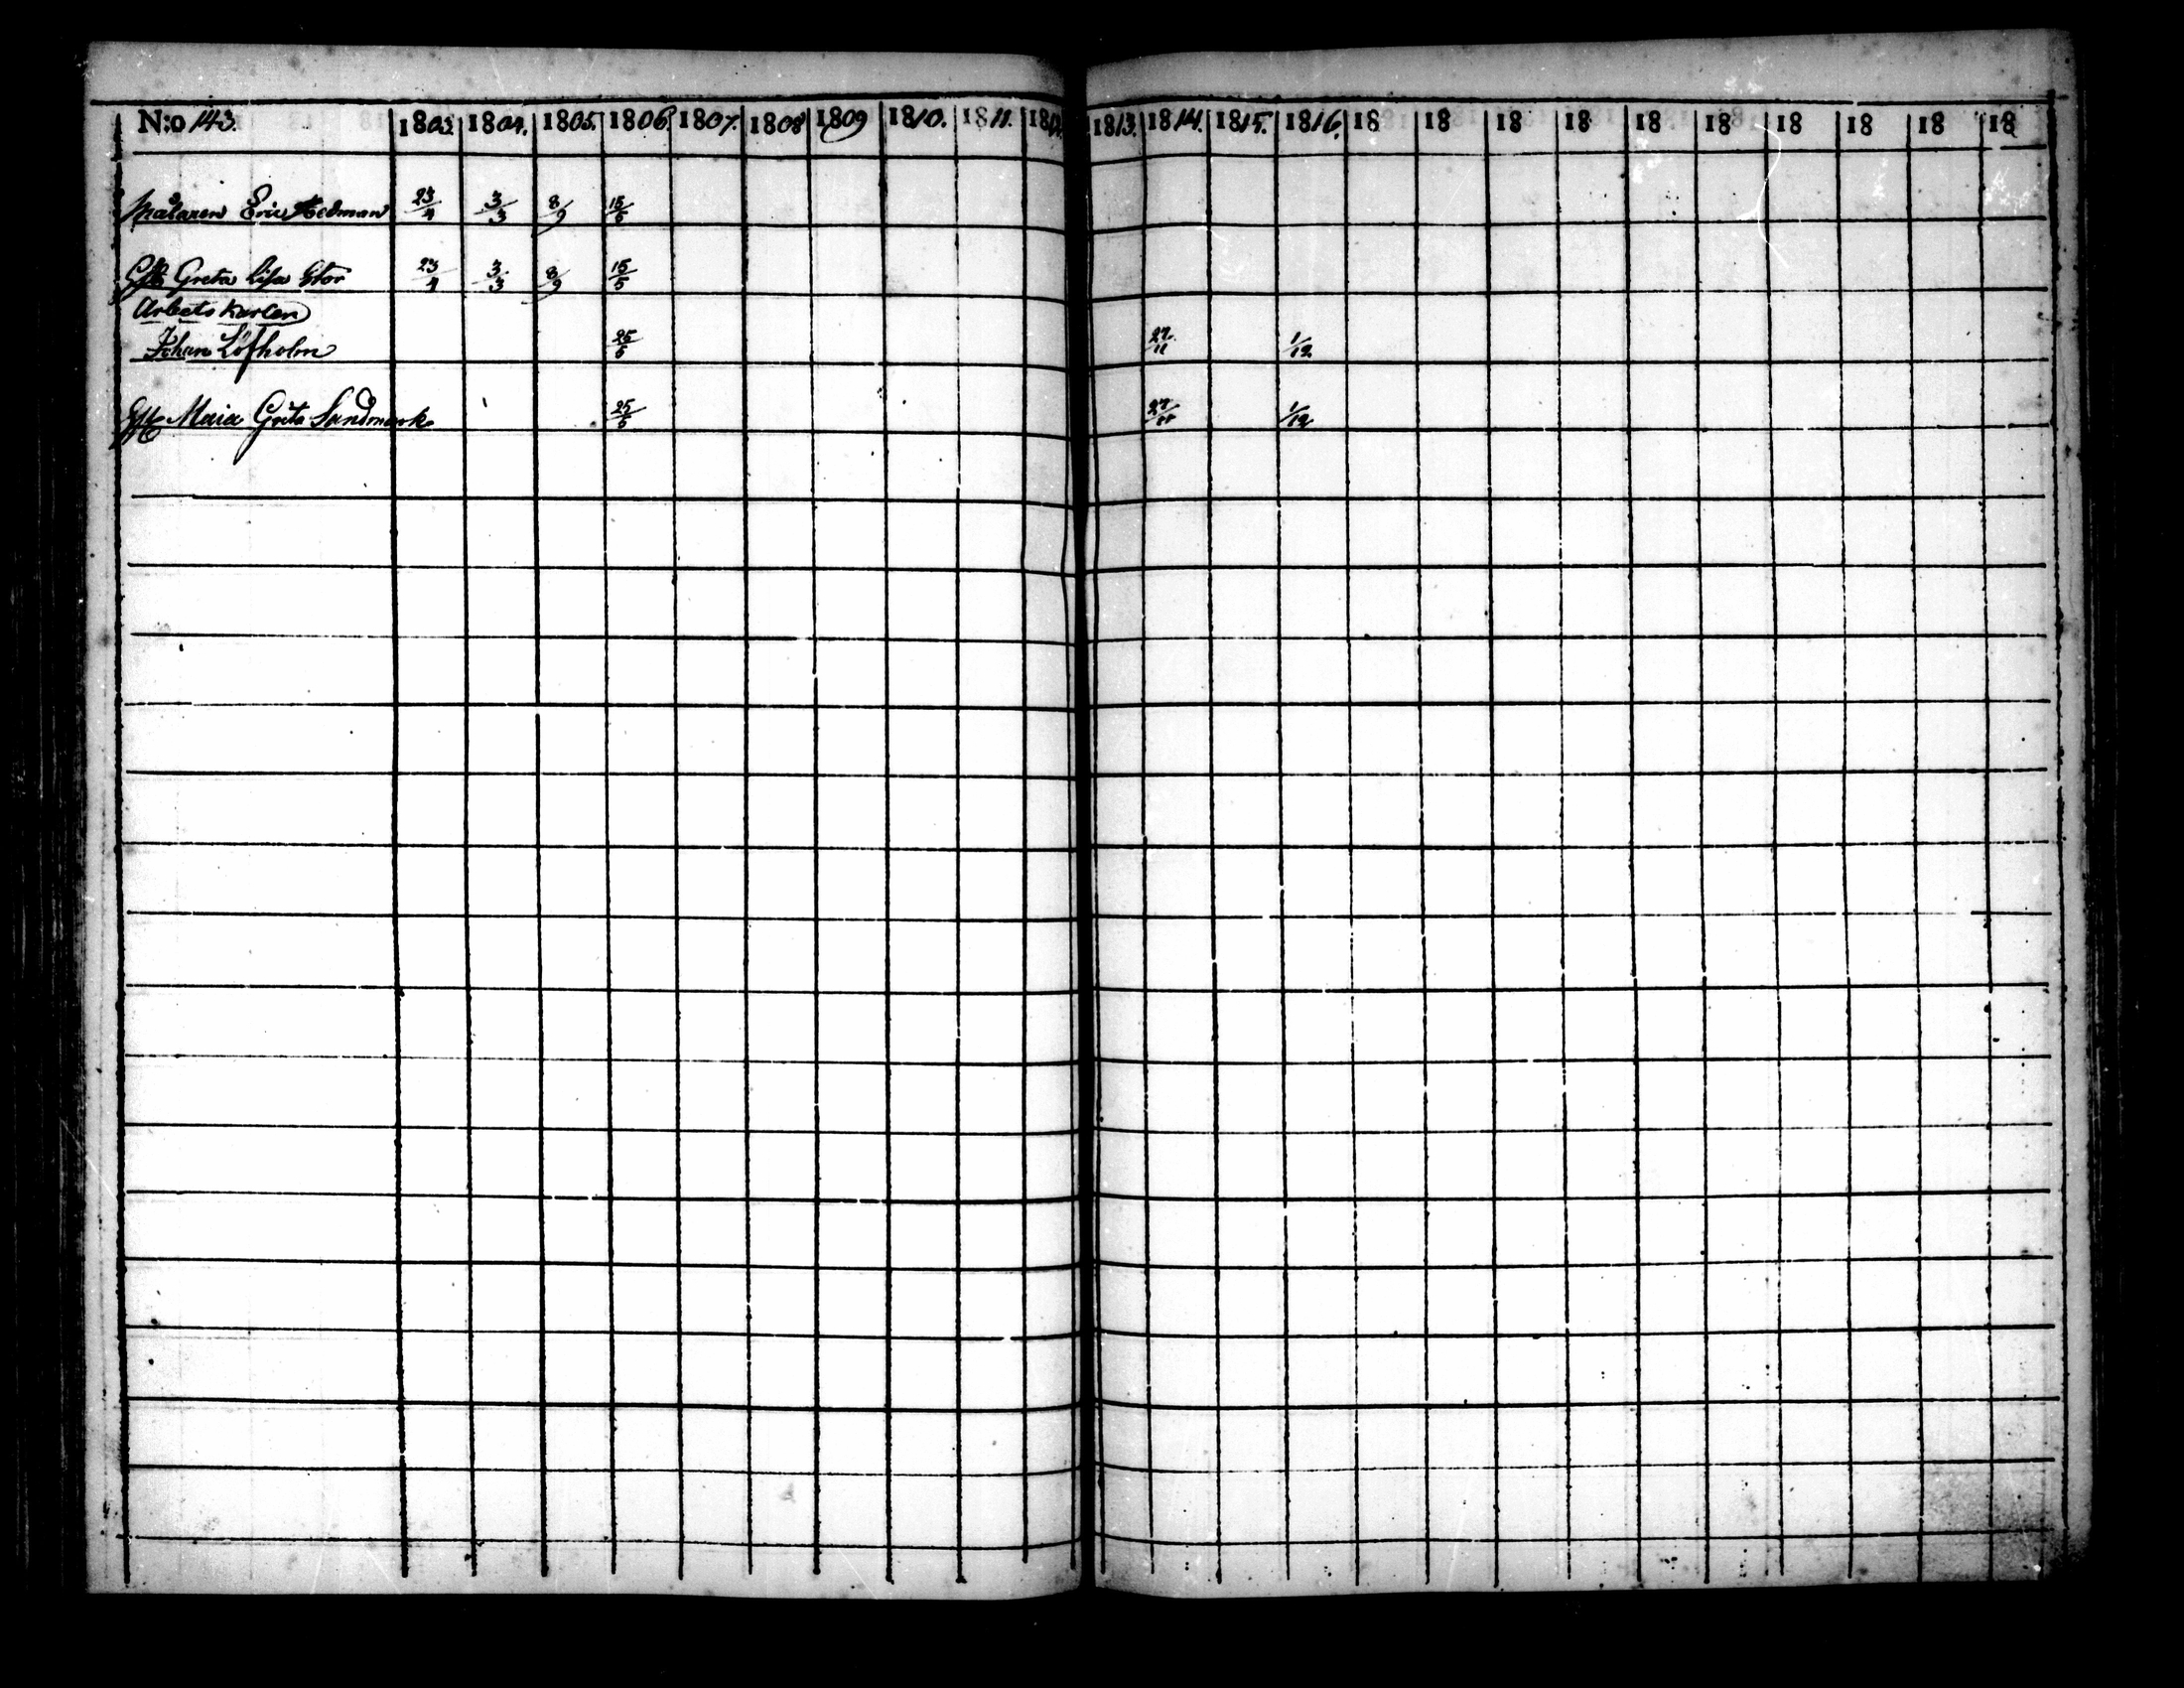 N:o 143. 1803. 1804. 1805. 1806. 1807. 1808 1809 1810. 1811. 1812. 1813. 1814. 1815. 1816. 18 18 18 18 18 18 18 18 18 18
Målaren Eric Hedman 23/4 3/3 8/9 15/5
Greta Lisa Stor 23/4 3/3 8/9 15/5
Arbets karlen
Johan Löfholm 25/5 27/11 1/12
Maia Greta Sandmark 25/5 27/11 1/12